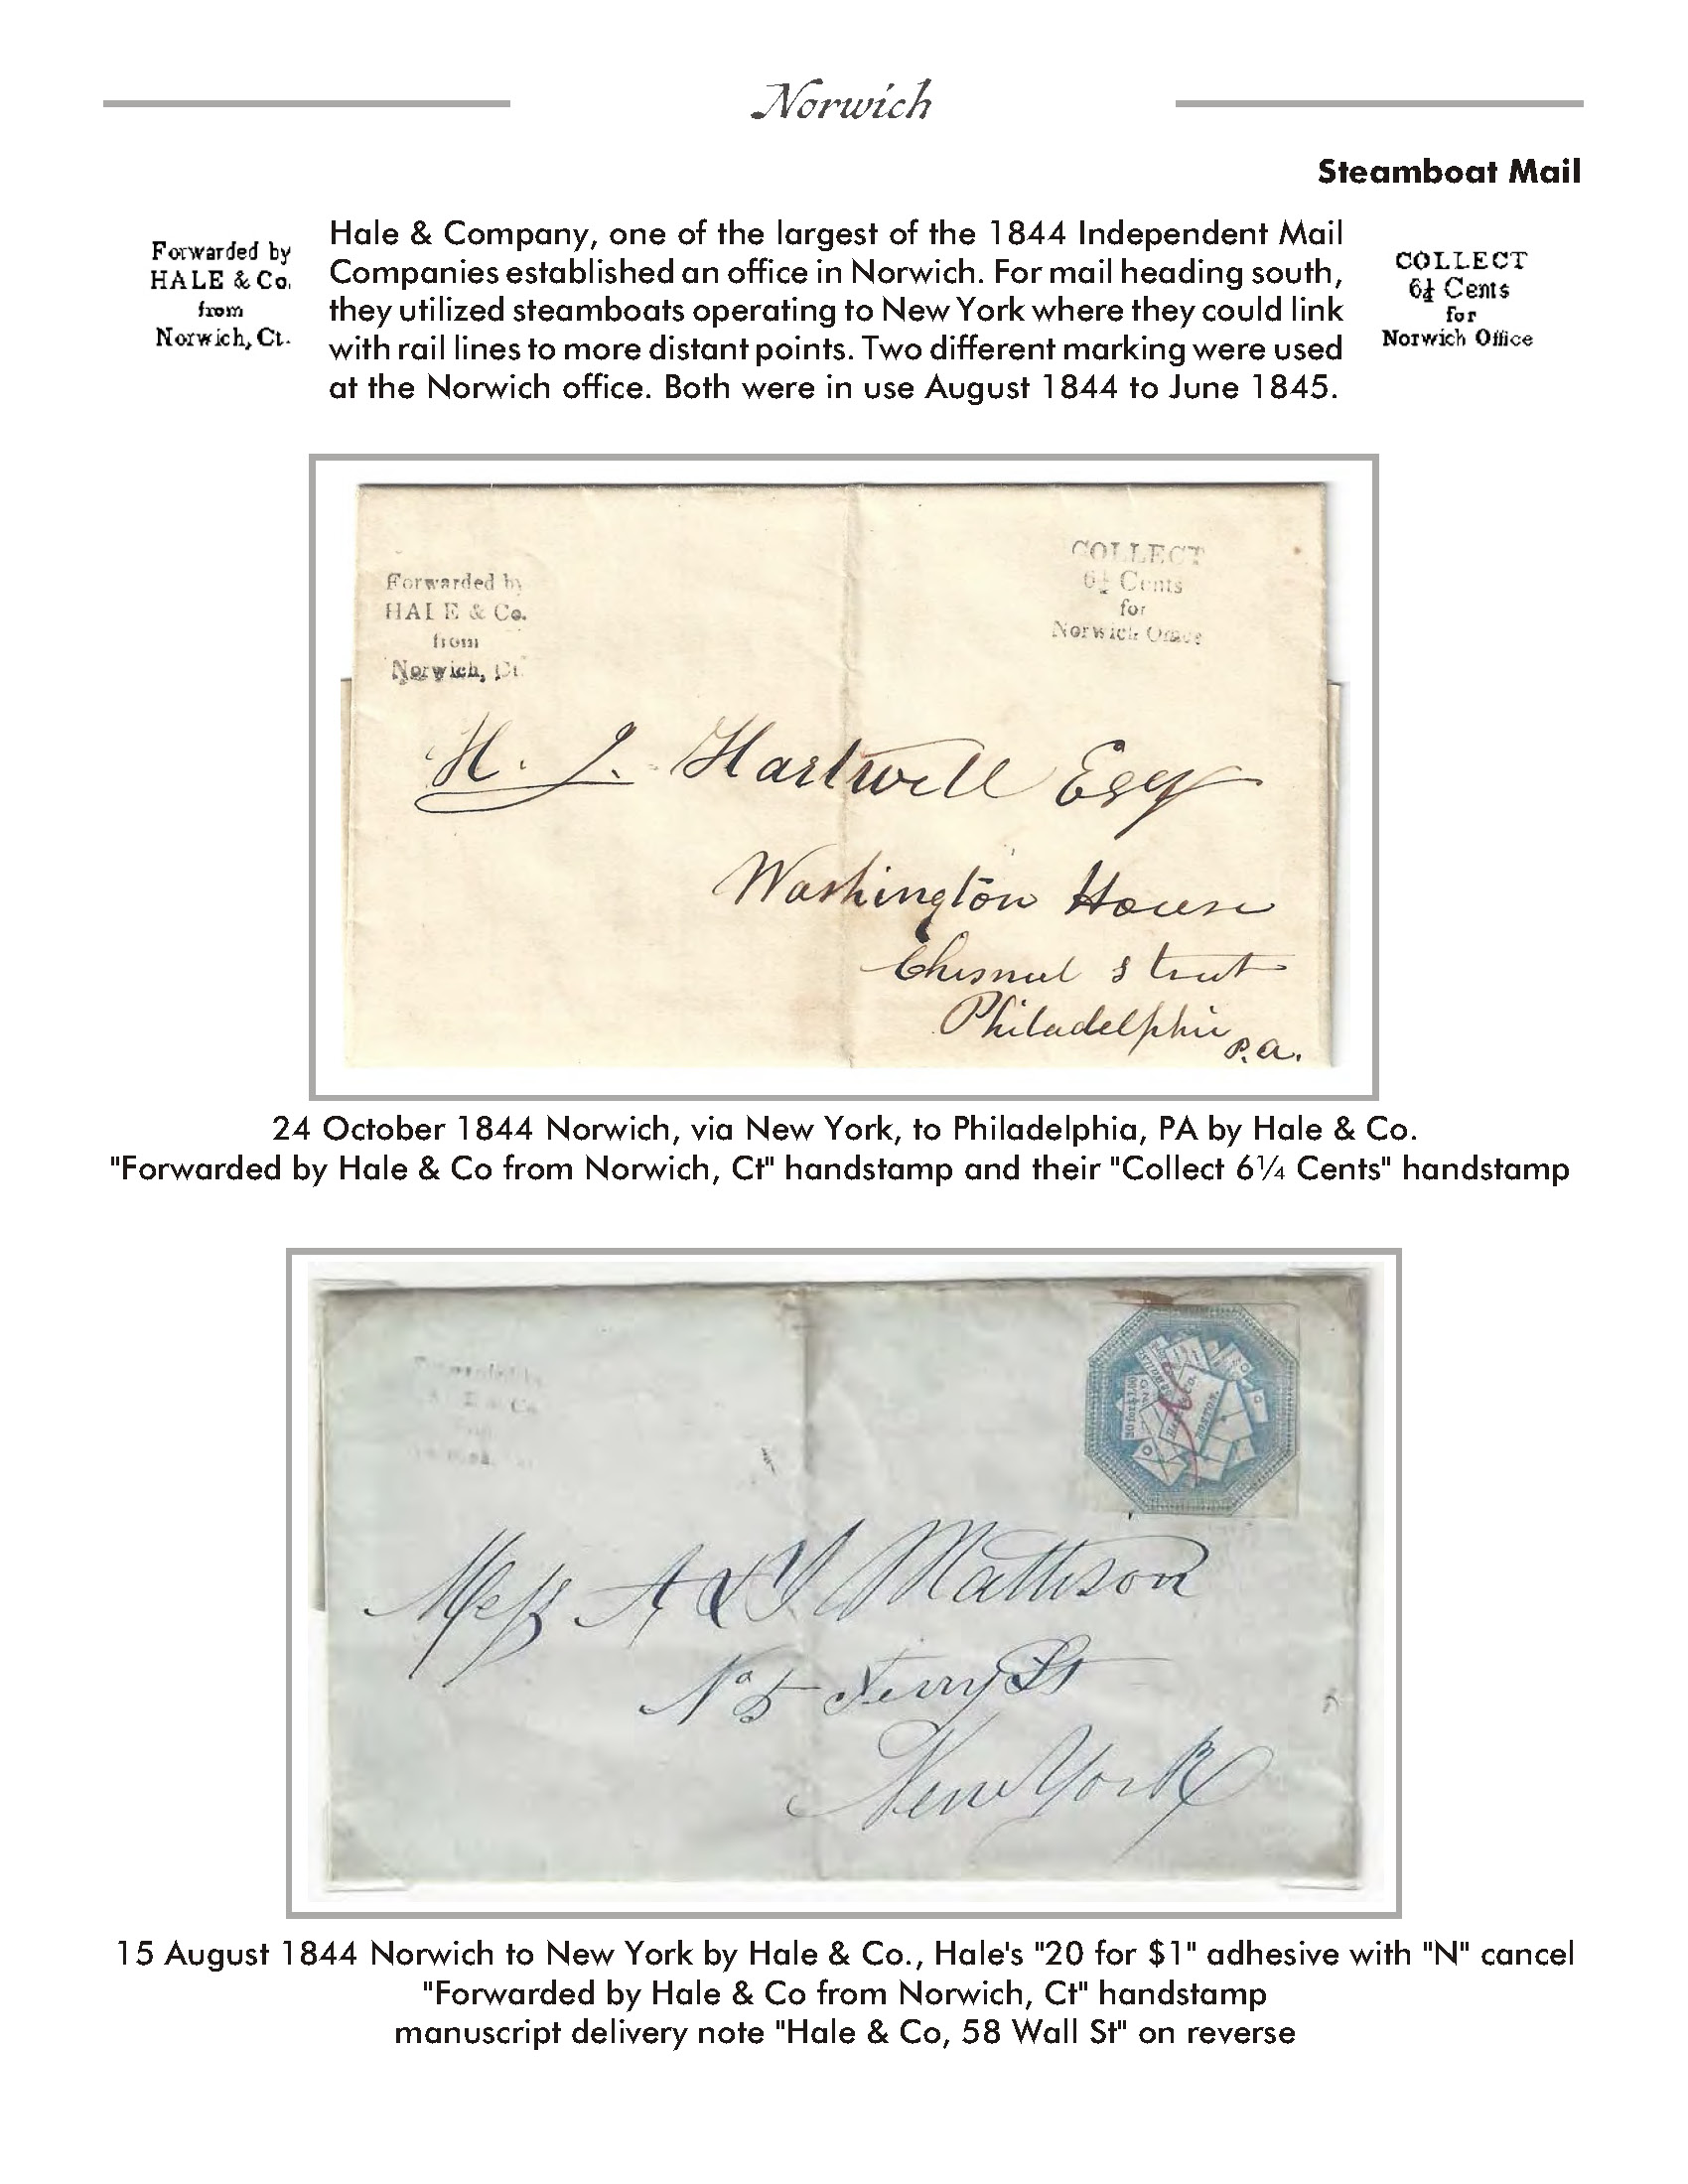 Norwich
Steamboat Mail
Forwarded by
HALE & Co.
from
Norwich, Ct.
Hale & Company, one of the largest of the 1844 Independent Mail
Companies established an office in Norwich. For mail heading south,
they utilized steamboats operating to New York where they could link
with rail lines to more distant points. Two different marking were used
at the Norwich office. Both were in use August 1844 to June 1845.
COLLECT
6¼ Cents
for
Norwich Office
Forwarded by
HALE & Co.
from
Norwich, Ct.
COLLECT
6¼ Cents
for
Norwich Office
H. J. Hartwell Esqr
Washington House
Chesnut Street
Philadelphia
P.a.
24 October 1844 Norwich, via New York, to Philadelphia, PA by Hale & Co.
"Forwarded by Hale & Co from Norwich, Ct" handstamp and their "Collect 6¼ Cents" handstamp
Forwarded by
& Co
20 for $1.00
BOSTON.
N
Mess A & J Mattison
No 5 Ferry St
New York
15 August 1844 Norwich to New York by Hale & Co., Hale's "20 for $1" adhesive with "N" cancel
"Forwarded by Hale & Co from Norwich, Ct" handstamp
manuscript delivery note "Hale & Co, 58 Wall St" on reverse